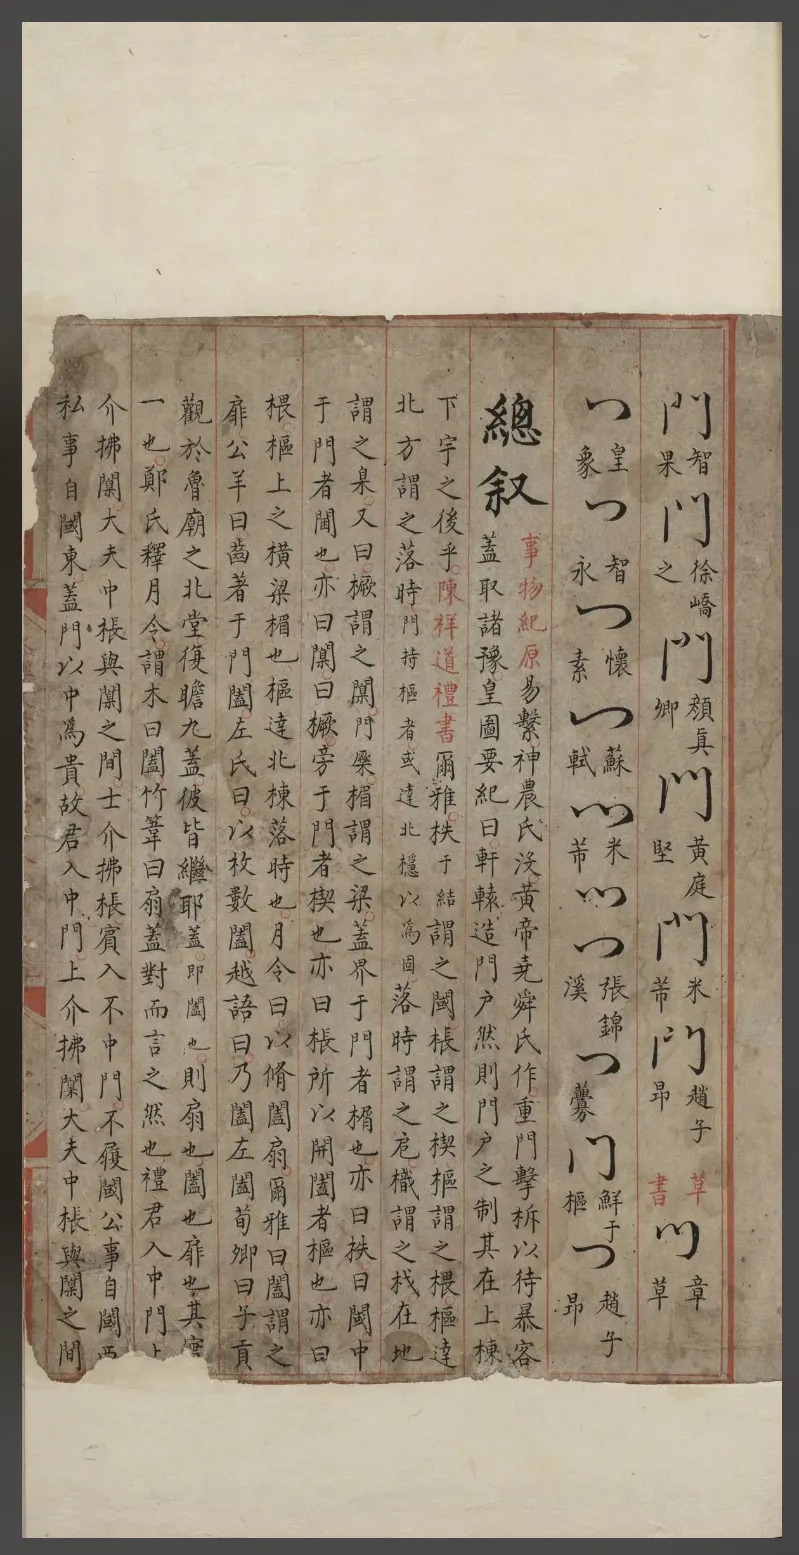 門智果門徐嶠之門顏真卿門黃庭堅門米芾門趙子昂草書門章草
門皇象門智永門懷素門蘇軾門米芾門門張錦溪門巎巎門鮮于樞門趙子昂
總叙
事物紀原易繫神農氏沒黃帝堯舜氏作重門擊柝以待暴客
蓋取諸豫皇圖要紀曰軒轅造門户然則門户之制其在上棟
下宇之後乎陳祥道禮書爾雅柣于結謂之閾棖謂之楔樞謂之椳樞達
北方謂之落時門持樞者或達北檼以爲固落時謂之戹樴謂之杙在地
謂之臬又曰橛謂之闑門橜楣謂之梁蓋界于門者楣也亦曰柣曰閾中
于門者閫也亦曰闑曰橛旁于門者楔也亦曰棖所以開闔者樞也亦曰
椳樞上之橫梁楣也樞達北棟落時也月令曰以脩闔扇爾雅曰闔謂之
扉公羊曰齒著于門闔左氏曰以枚數闔越語曰乃闔左闔荀卿曰子貢
觀於魯廟之北堂復瞻九蓋彼皆繼耶蓋即闔也則扇也闔也扉也其實
一也鄭氏釋月令謂木曰闔竹葦曰扇蓋對而言之然也禮君入中門上
介拂闑大夫中棖與闑之間士介拂棖賓入不中門不履閾公事自閾西
私事自閾東蓋門以中爲貴故君入中門上介拂闑大夫中棖與闑之間